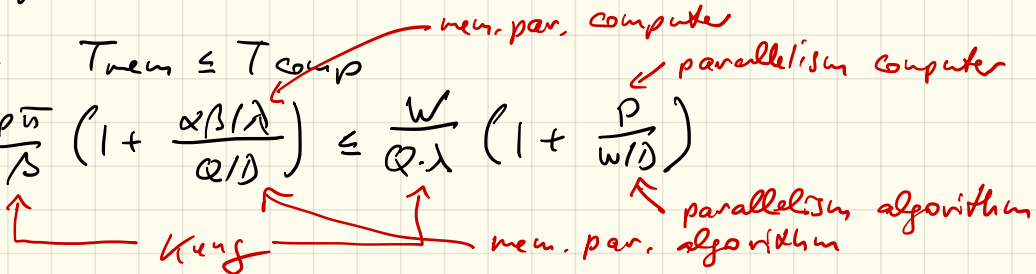 mem. par. computer
T_mem ≤ T_comp
parallelism computer
pπ/β (1 + (αβ/λ)/(Q/D)) ≤ W/(Q·λ) (1 + P/(W/D))
parallelism algorithm
Kung mem. par. algorithm